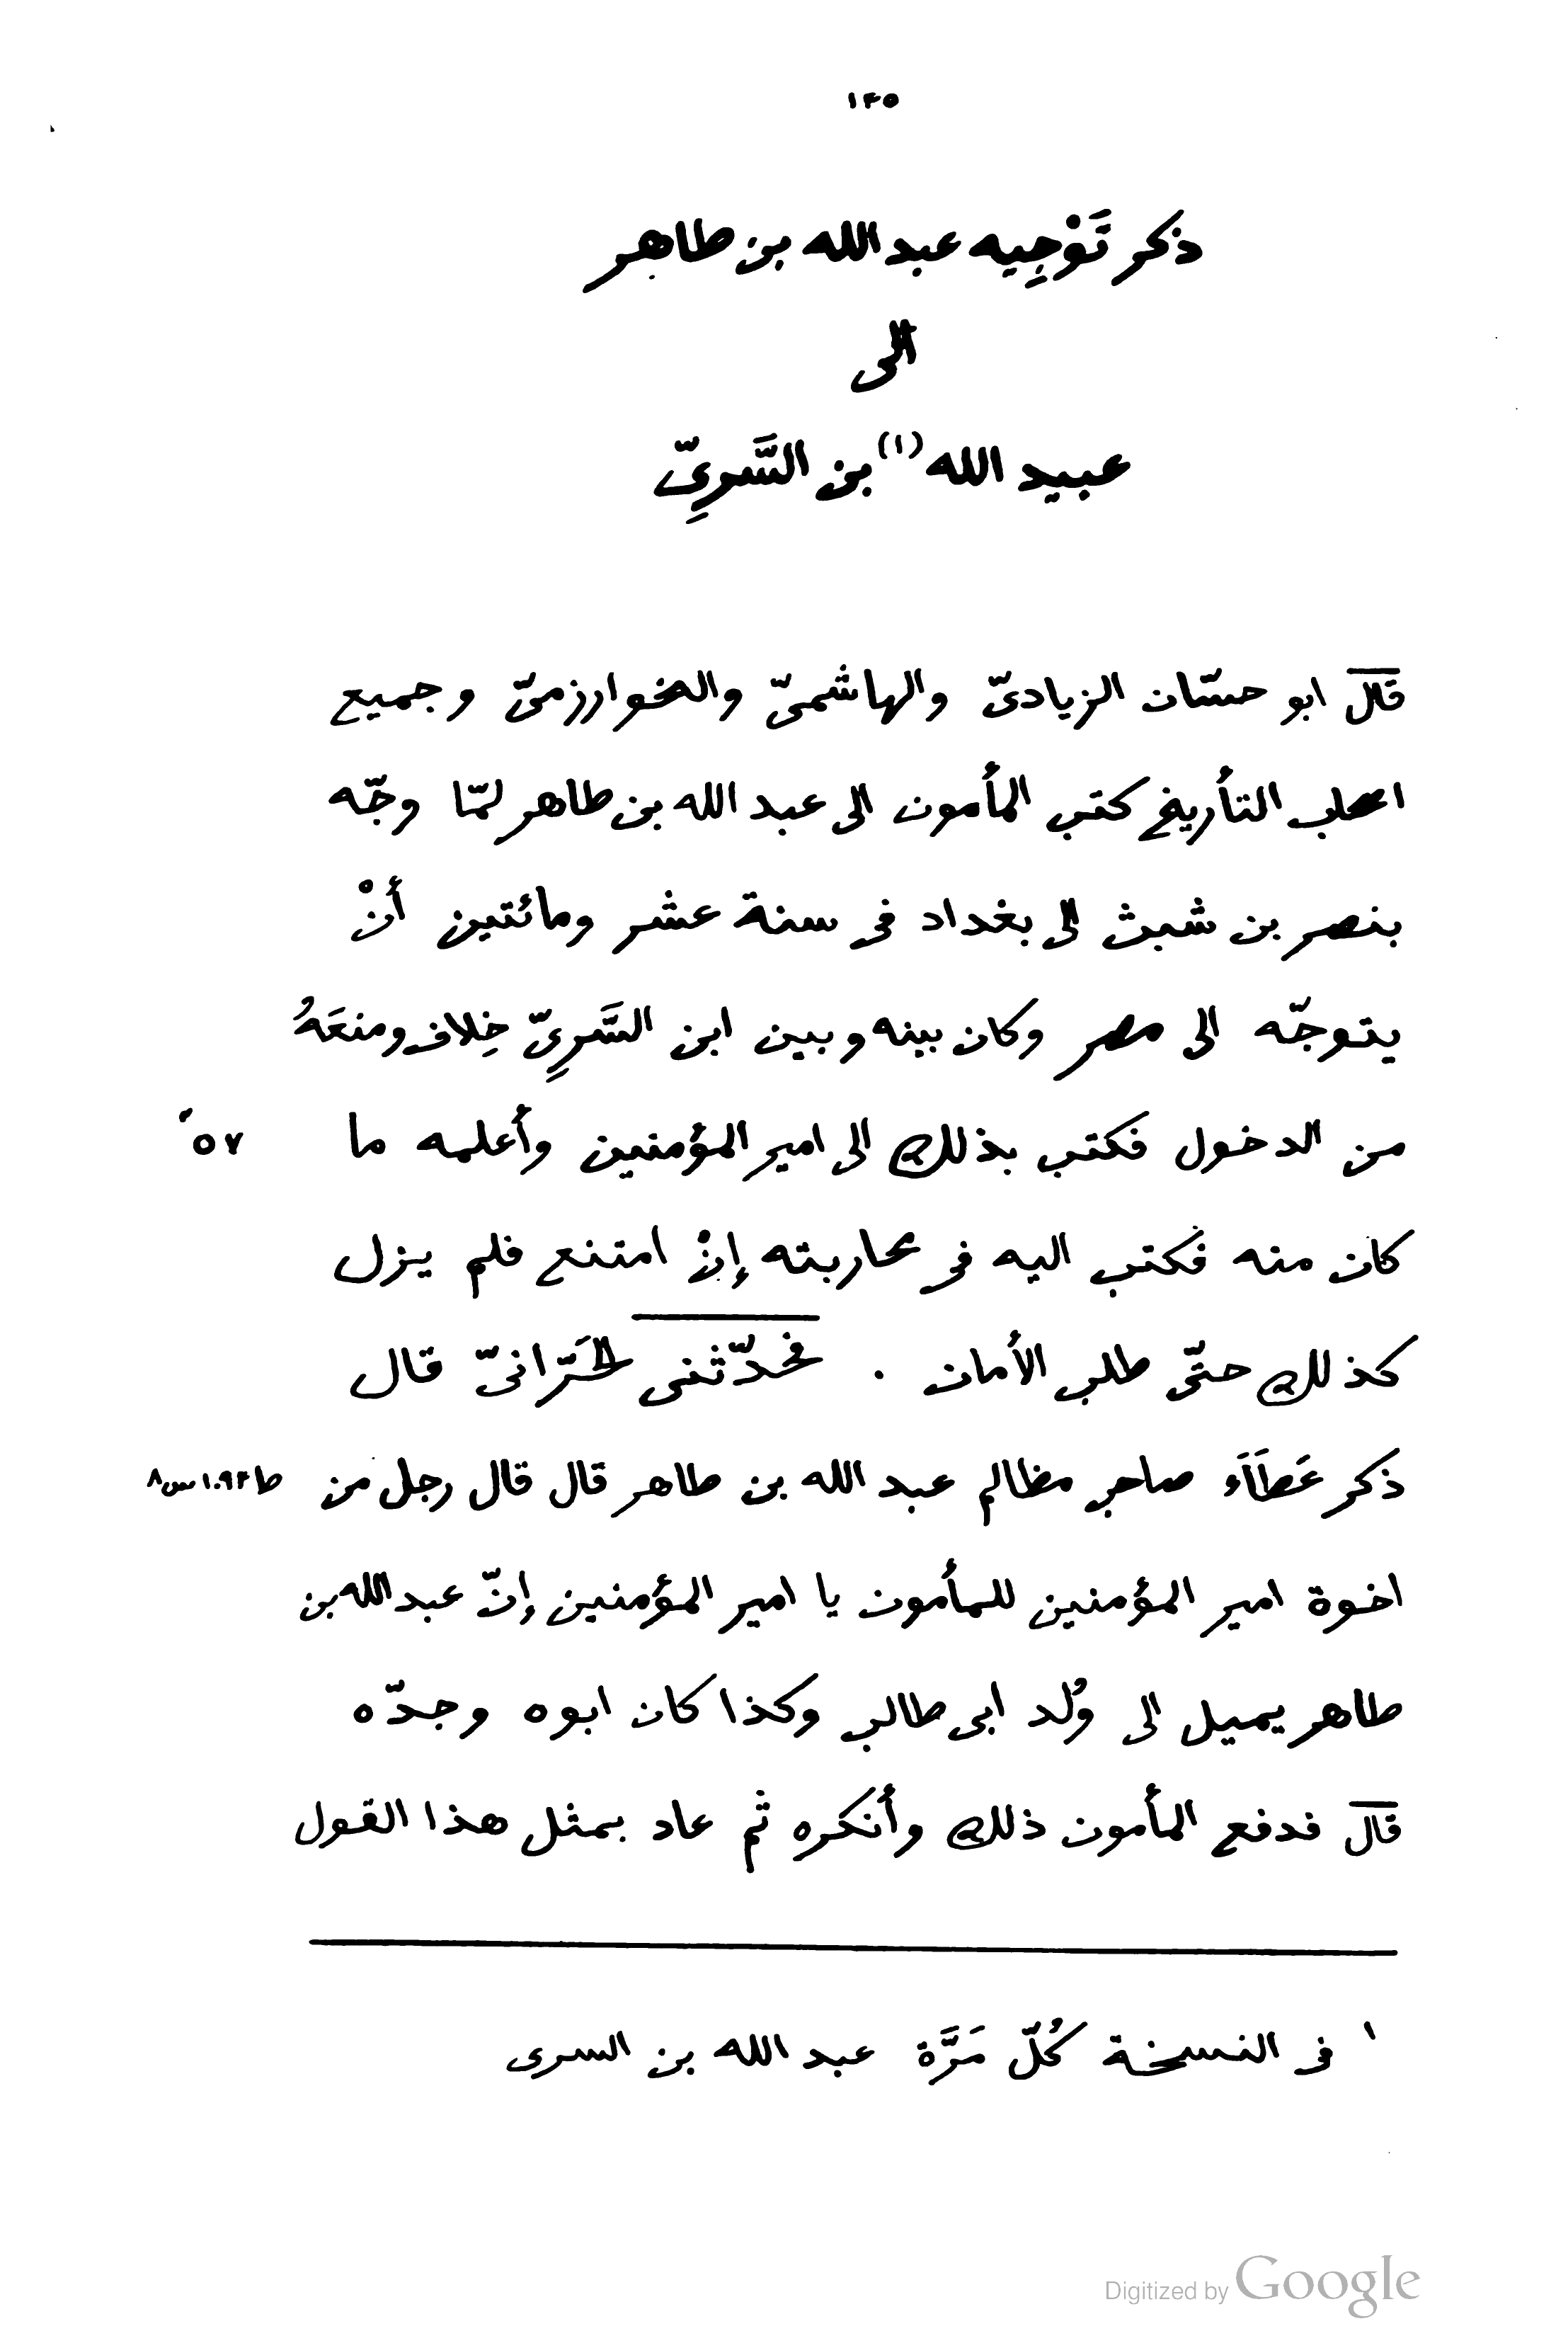 ١٤٥
ذكر تَوْجِيه عبد الله بن طاهر
الى
عبيد الله (١) بن السَّرِىّ
قال ابو حسّان الزيادىّ والهاشمىّ والخوارزمىّ وجميع
اصحاب التأريخ كتب المأمون الى عبد الله بن طاهر لمّا وجّه
بنصر بن شبث الى بغداد فى سنة عشر ومائتين أنْ
يتوجّه الى مصر وكان بينه وبين ابن السَّرِىّ خِلاف ومنعَهُ
من الدخول فكتب بذلك الى امير المؤمنين وأعلمه ما ٥٧
كان منه فكتب اليه فى محاربته إنْ امتنع فلم يزل
كذلك حتّى طلب الأمان . فحدّثنى الحَرّانىّ قال
ذكر عَطَاَء صاحب مظالم عبد الله بن طاهر قال قال رجل من ط ١٠٩٤ س ٨
اخوة امير المؤمنين للمأمون يا امير المؤمنين إنّ عبد الله بن
طاهر يميل الى وُلد ابى طالب وكذا كان ابوه وجدّه
قال فدفع المأمون ذلك وأنكره ثم عاد بمثل هذا القول
١ فى النسخة كُلّ مَرَّة عبد الله بن السرى
Digitized by Google